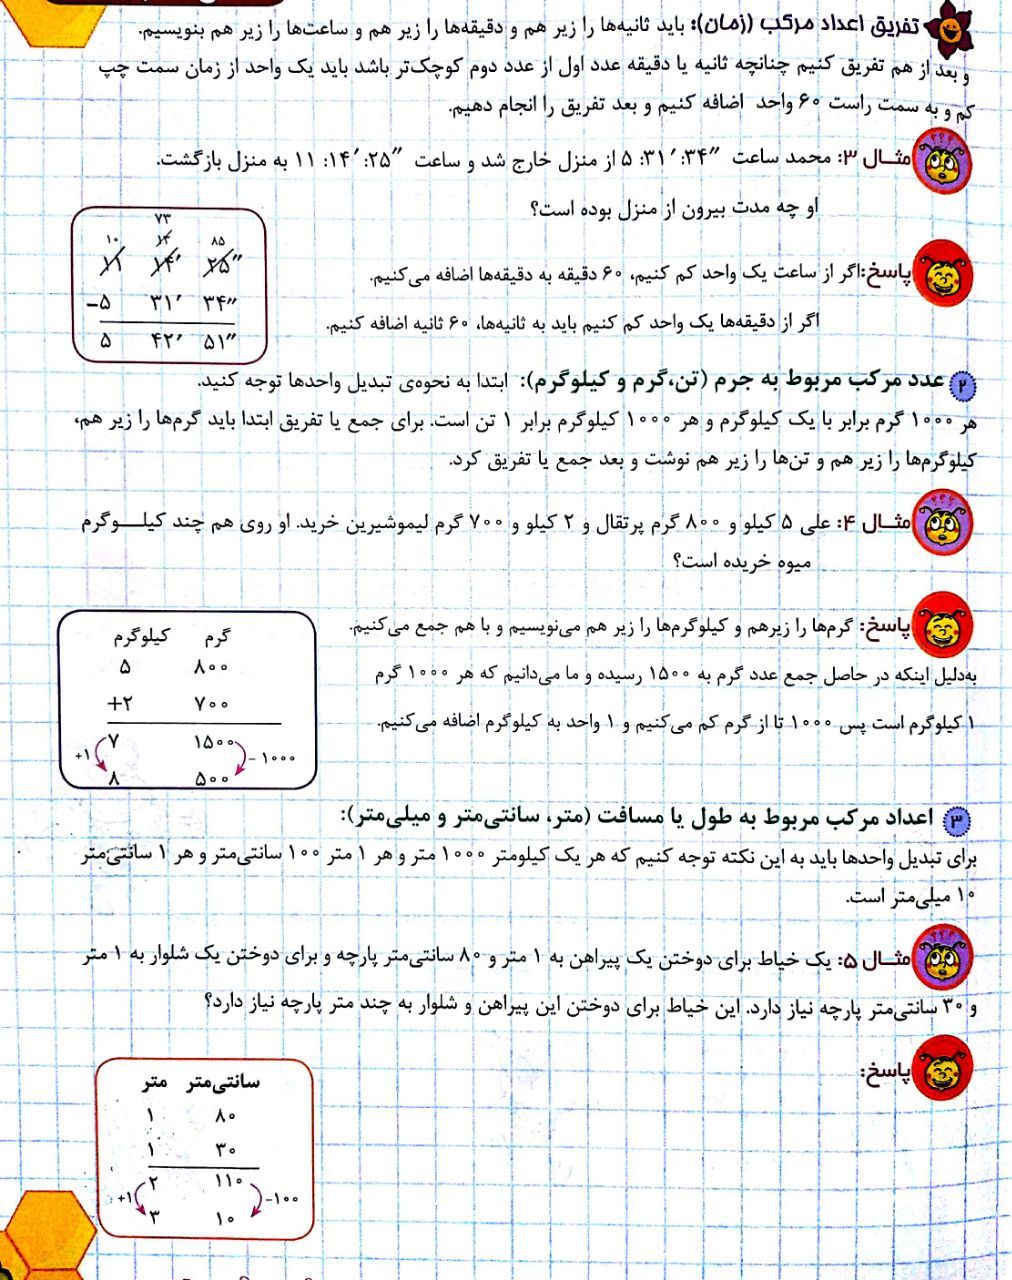 تفریق اعداد مرکب (زمان): باید ثانیه‌ها را زیر هم و دقیقه‌ها را زیر هم و ساعت‌ها را زیر هم بنویسیم.
و بعد از هم تفریق کنیم چنانچه ثانیه یا دقیقه عدد اول از عدد دوم کوچک‌تر باشد باید یک واحد از زمان سمت چپ
کم و به سمت راست ۶۰ واحد اضافه کنیم و بعد تفریق را انجام دهیم.
مثال ۳: محمد ساعت ۵ :۳۱′ :۳۴″ از منزل خارج شد و ساعت ۱۱ :۱۴′ :۲۵″ به منزل بازگشت.
او چه مدت بیرون از منزل بوده است؟
۷۳
۱۰ ۱۳ ۸۵
۱۱ ۱۴′ ۲۵″
−۵ ۳۱′ ۳۴″
۵ ۴۲′ ۵۱″
پاسخ: اگر از ساعت یک واحد کم کنیم، ۶۰ دقیقه به دقیقه‌ها اضافه می‌کنیم.
اگر از دقیقه‌ها یک واحد کم کنیم باید به ثانیه‌ها، ۶۰ ثانیه اضافه کنیم.
۲ عدد مرکب مربوط به جرم (تن،گرم و کیلوگرم): ابتدا به نحوه‌ی تبدیل واحدها توجه کنید.
هر ۱۰۰۰ گرم برابر با یک کیلوگرم و هر ۱۰۰۰ کیلوگرم برابر ۱ تن است. برای جمع یا تفریق ابتدا باید گرم‌ها را زیر هم،
کیلوگرم‌ها را زیر هم و تن‌ها را زیر هم نوشت و بعد جمع یا تفریق کرد.
مثال ۴: علی ۵ کیلو و ۸۰۰ گرم پرتقال و ۲ کیلو و ۷۰۰ گرم لیموشیرین خرید. او روی هم چند کیلوگرم
میوه خریده است؟
پاسخ: گرم‌ها را زیرهم و کیلوگرم‌ها را زیر هم می‌نویسیم و با هم جمع می‌کنیم.
به‌دلیل اینکه در حاصل جمع عدد گرم به ۱۵۰۰ رسیده و ما می‌دانیم که هر ۱۰۰۰ گرم
۱ کیلوگرم است پس ۱۰۰۰ تا از گرم کم می‌کنیم و ۱ واحد به کیلوگرم اضافه می‌کنیم.
کیلوگرم گرم
۵ ۸۰۰
+۲ ۷۰۰
۷ ۱۵۰۰
+۱ −۱۰۰۰
۸ ۵۰۰
۳ اعداد مرکب مربوط به طول یا مسافت (متر، سانتی‌متر و میلی‌متر):
برای تبدیل واحدها باید به این نکته توجه کنیم که هر یک کیلومتر ۱۰۰۰ متر و هر ۱ متر ۱۰۰ سانتی‌متر و هر ۱ سانتی‌متر
۱۰ میلی‌متر است.
مثال ۵: یک خیاط برای دوختن یک پیراهن به ۱ متر و ۸۰ سانتی‌متر پارچه و برای دوختن یک شلوار به ۱ متر
و ۳۰ سانتی‌متر پارچه نیاز دارد. این خیاط برای دوختن این پیراهن و شلوار به چند متر پارچه نیاز دارد؟
پاسخ:
متر سانتی‌متر
۱ ۸۰
۱ ۳۰
۲ ۱۱۰
+۱ −۱۰۰
۳ ۱۰